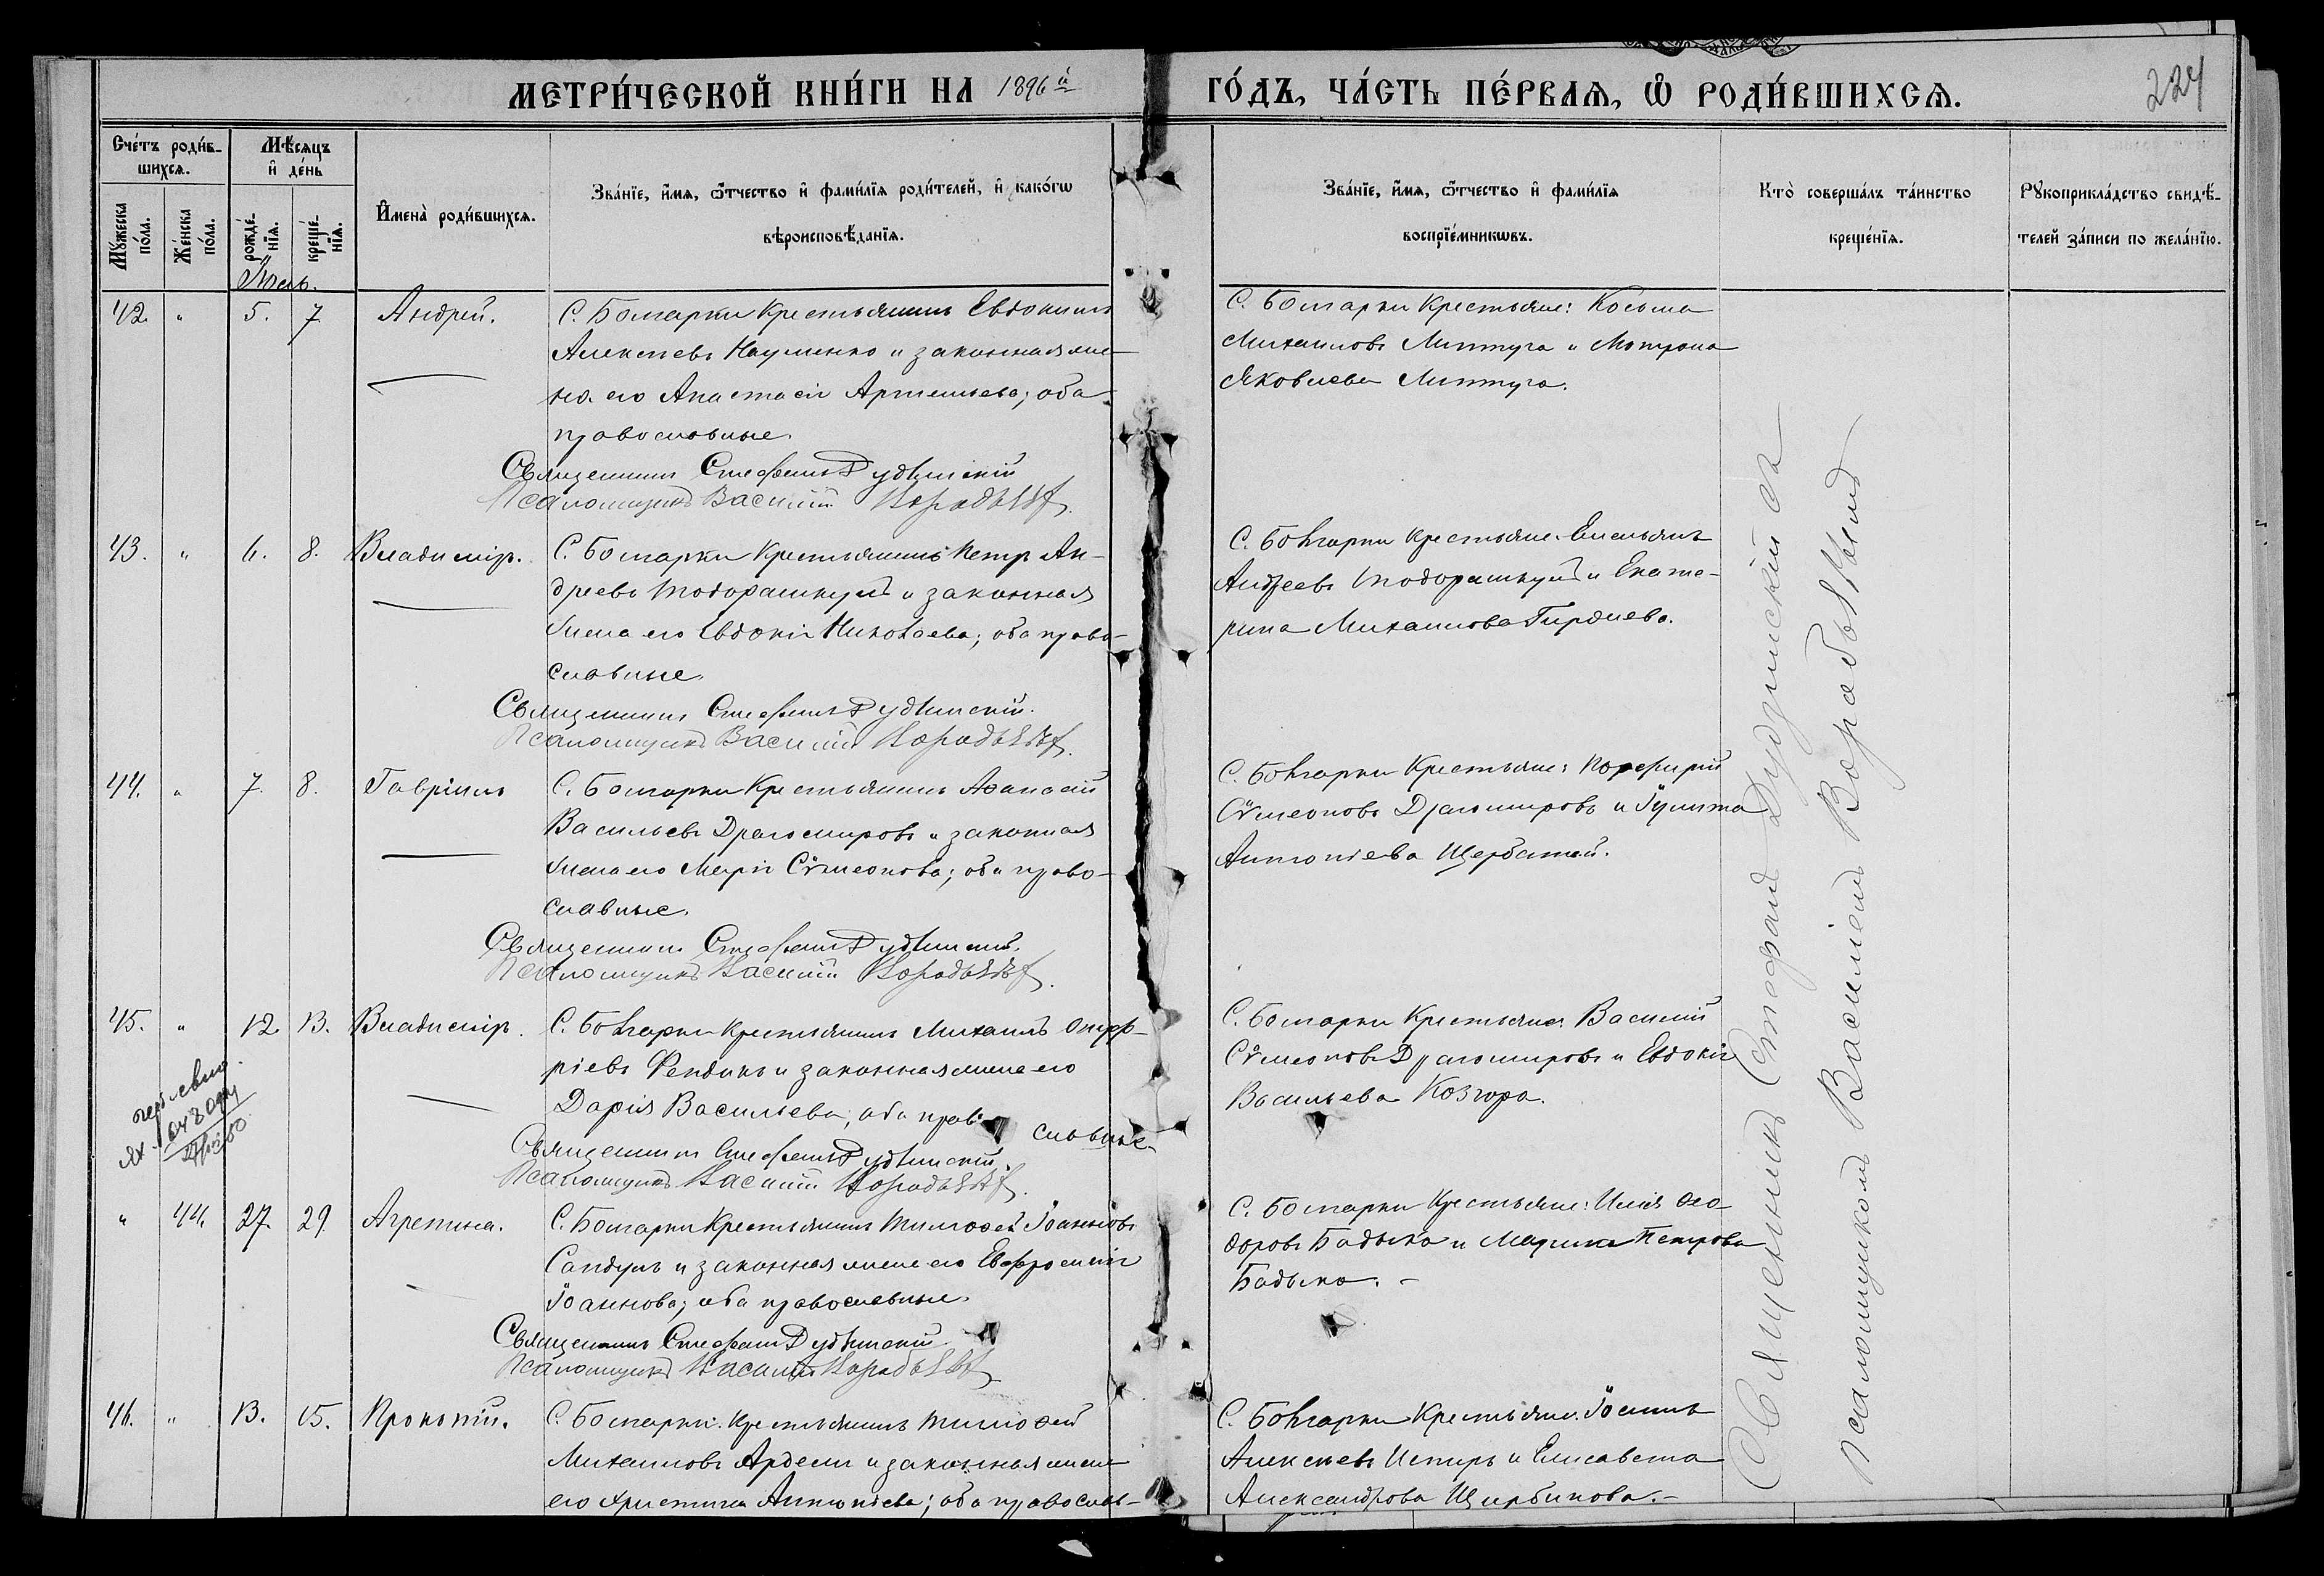 МЕТРИ́ЧЕСКОЙ КНИ́ГИ НА 1896й ГО́ДЪ, ЧА́СТЬ ПЕ́РВАЯ, Ѡ РОДИ́ВШИХСЯ.
224
Счетъ роди́в-
шихся.
Мѣсяцъ
и де́нь
Му́жеска
по́ла.
Же́нска
по́ла.
рожде́-
нїя.
креще́-
нїя.
Имена̀ роди́вшихся.
Зва́нїе, и́мя, ѻ҆́тчество и҆ фами́лїя роди́телей, и҆ како́гѡ
вѣроисповѣ́данїя.
Зва́нїе, и́мя, ѻ҆́тчество и҆ фами́лїя
воспрїе́мникѡвъ.
Кто̀ соверша́лъ та́инство
креще́нїя.
Рукоприкла́дство свидѣ́-
телей за́писи по жела́нїю.
Іюль.
42. " 5. 7. Андрей.
С. Болгарки Крестьянинъ Евдокимъ
Алексѣевъ Науменко и законная же-
на его Анастасія Артемьева; оба
православные.
Священникъ Стефанъ Дудзинскій
Псаломщикъ Василій
С. Болгарки Крестьяне: Косьма
Михаиловъ Липтуга и Мотрона
Яковлева Липтуга.
43. " 6. 8. Владиміръ.
С. Болгарки Крестьянинъ Петръ Ан-
дреевъ Тодорашкулъ и законная
жена его Евдокія Николаева; оба право-
славные.
Священникъ Стефанъ Дудзинскій.
Псаломщикъ Василій
С. Болгарки Крестьяне: Емельянъ
Андреевъ Тодорашкулъ и Екате-
рина Михаилова Гирдиева.
44. " 7. 8. Гавріилъ
С. Болгарки Крестьянинъ Аѳанасій
Васильевъ Драгомировъ и законная
жена его Марія Сѵмеонова; оба право-
славные.
Священникъ Стефанъ Дудзинскій.
Псаломщикъ Василій
С. Болгарки Крестьяне: Порфирій
Сѵмеоновъ Драгомировъ и Іулита
Антоніева Щербатой.
45. " 12. 13. Владиміръ.
С. Болгарки Крестьянинъ Михаилъ Онуф-
ріевъ Фендикъ и законная жена его
Дарія Васильева; оба право славные.
Священникъ Стефанъ Дудзинскій.
Псаломщикъ Василій
С. Болгарки Крестьяне: Василій
Сѵмеоновъ Драгомировъ и Евдокія
Васильева Козгора.
" 44. 27. 29. Агрепина.
С. Болгарки Крестьянинъ Тимоѳей Іоанновъ
Сандулъ и законная жена его Евфросинія
Іоаннова; оба православные.
Священникъ Стефанъ Дудзинскій
Псаломщикъ Василій
С. Болгарки Крестьяне: Илія Ѳео-
доровъ Бадыка и Марина Петрова
Бадыка. –
46. " 13. 15. Прокопій.
С. Болгарки. Крестьянинъ Тимоѳей
Михаиловъ Ардели и законная жена
его Христина Антоніева; оба православ-
С. Болгарки Крестьяне: Іоаннъ
Алексѣевъ Испиръ и Елисавета
Александрова Щирбинова. –
Священникъ Стефанъ Дудзинскій съ
Псаломщикомъ Василіемъ